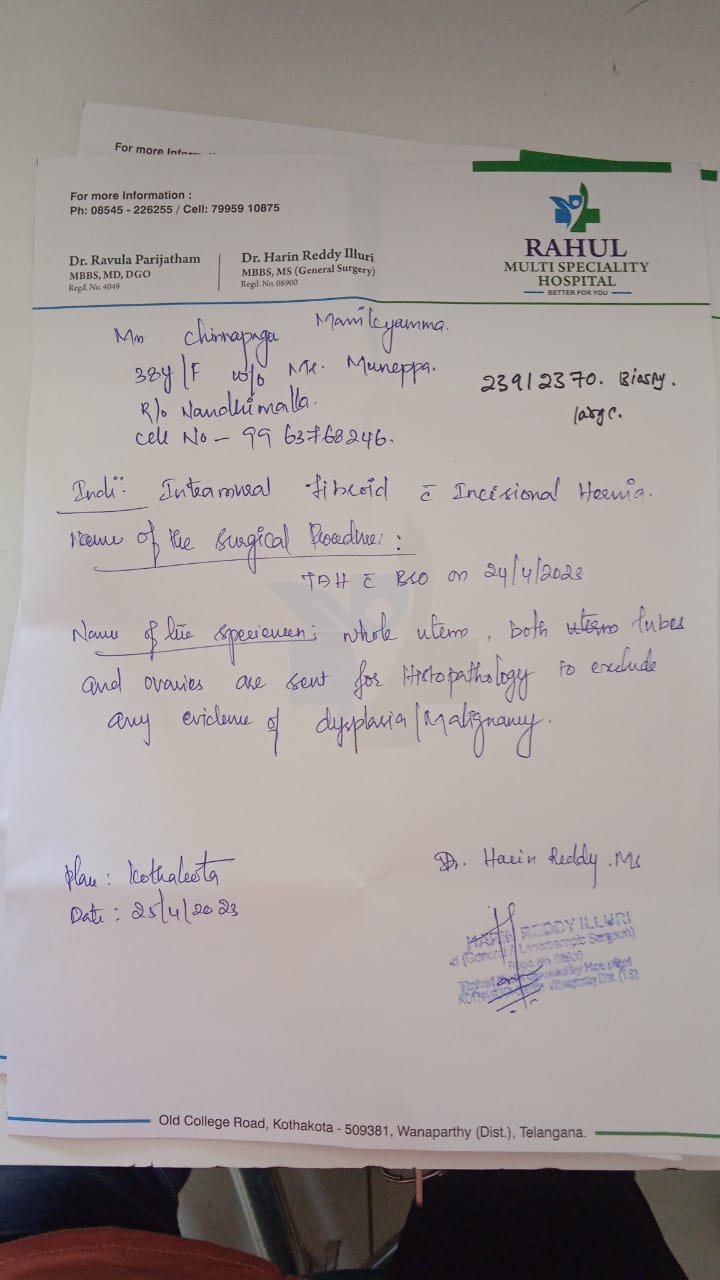 For more Infor
For more Information :
Ph: 08545 - 226255 / Cell: 79959 10875
Dr. Ravula Parijatham
MBBS, MD, DGO
Regd. No. 4049
Dr. Harin Reddy Illuri
MBBS, MS (General Surgery)
Regd. No. 08900
RAHUL
MULTI SPECIALITY
HOSPITAL
BETTER FOR YOU
Chinnapaga Manikyamma.
38y/F w/o Mr. Muneppa.
R/o Nandhimalla.
Cell No - 99 63768246.
23912370. Biospy.
large.
Indi: Intramural fibroid c̄ Incisional Hernia.
Name of the Surgical Procedure :
TAH c̄ BSO on 24/4/2023
Name of the specimen : whole uterus, both tubes
and ovaries are sent for Histopathology to exclude
any evidence of dysplasia/Malignancy.
Place : Kothakota
Date : 25/4/2023
Dr. Harin Reddy .Ms
HARIN REDDY ILLURI
(General & Laparoscopic Surgeon)
Regd. No. 08900
Wanaparthy Dist. (T.S)
Old College Road, Kothakota - 509381, Wanaparthy (Dist.), Telangana.